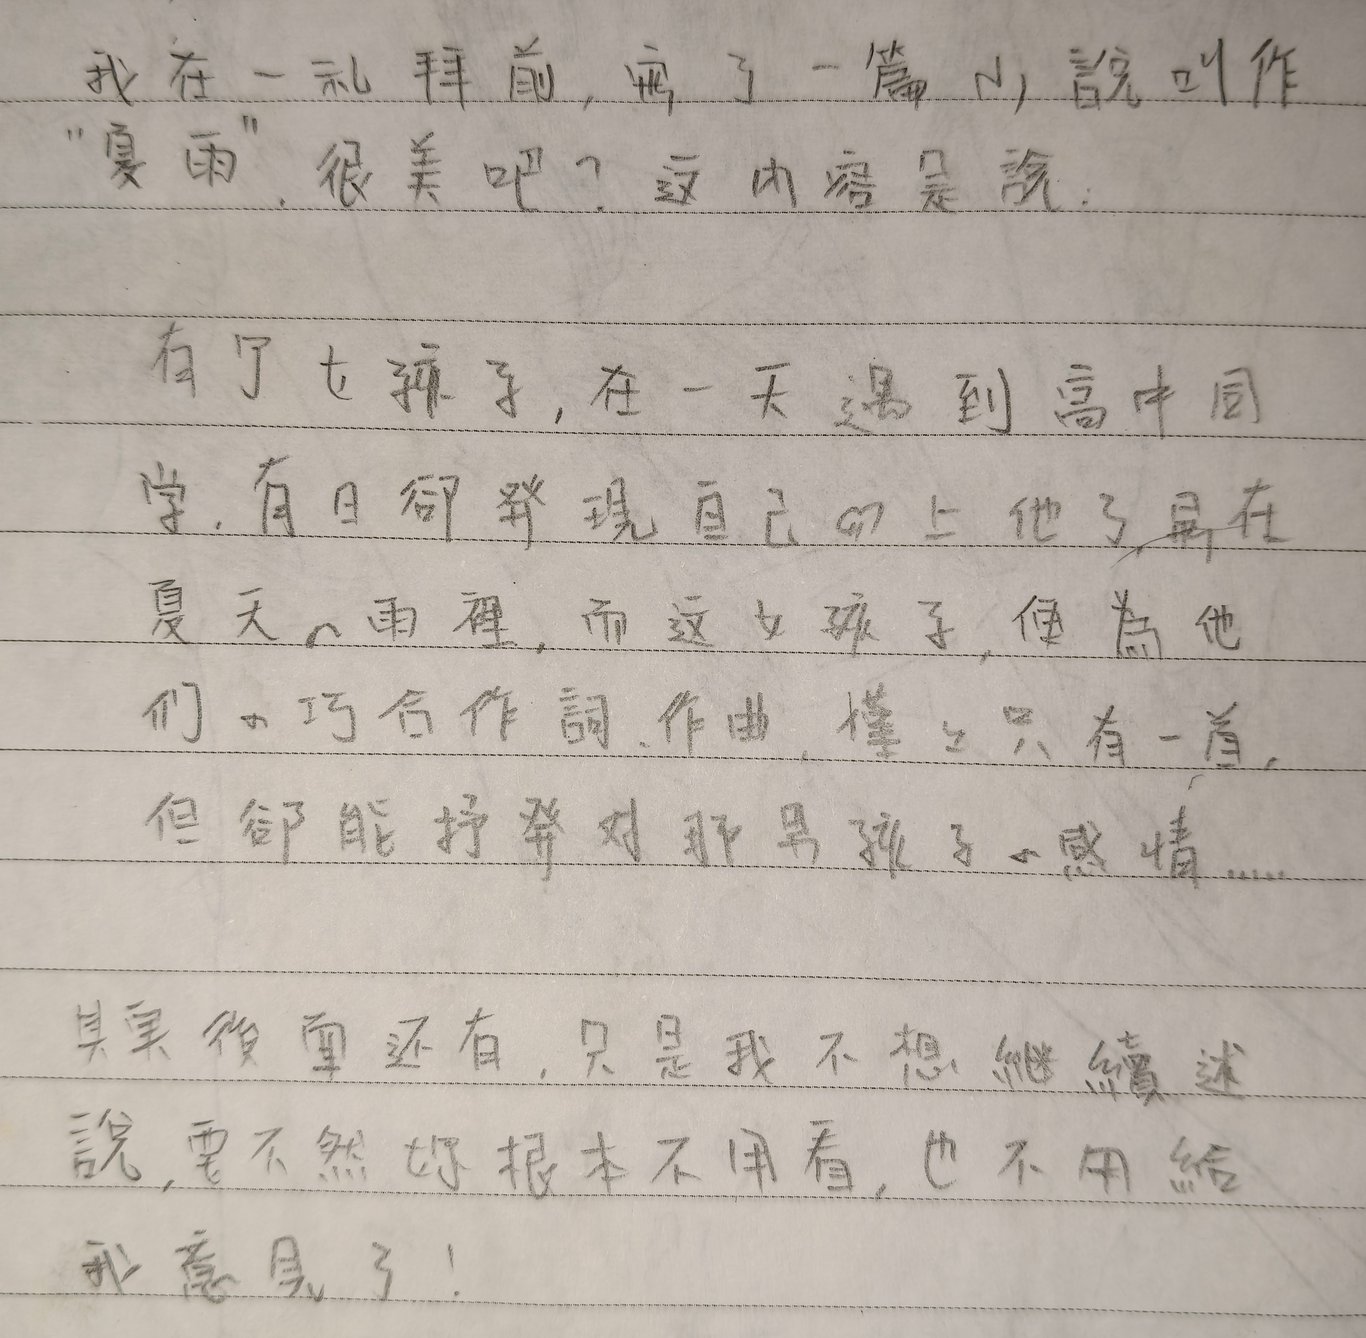 我在一礼拜前,寫了一篇小說叫作
"夏雨".很美吧?这內容是說:
有了女孩子,在一天遇到高中同
学.有日卻發現自己の上他了,是在
夏天の雨裡,而这女孩子,便為他
们の巧合作詞.作曲,僅々只有一首,
但卻能抒發对那男孩子の感情......
其実後面还有,只是我不想繼續述
說,要不然妳根本不用看,也不用給
我意見了!